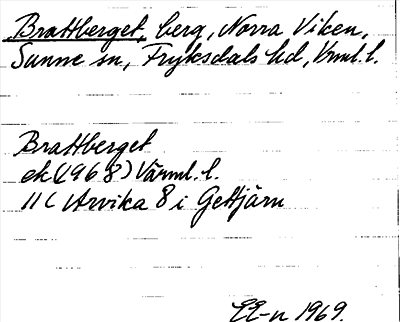 Brattberget, berg, Norra Viken,
Sunne sn, Fryksdals hd, Vrml. l.
Brattberget
ek (1968) Värml. l.
11C Arvika 8 i Gettjärn
EE-n 1969.